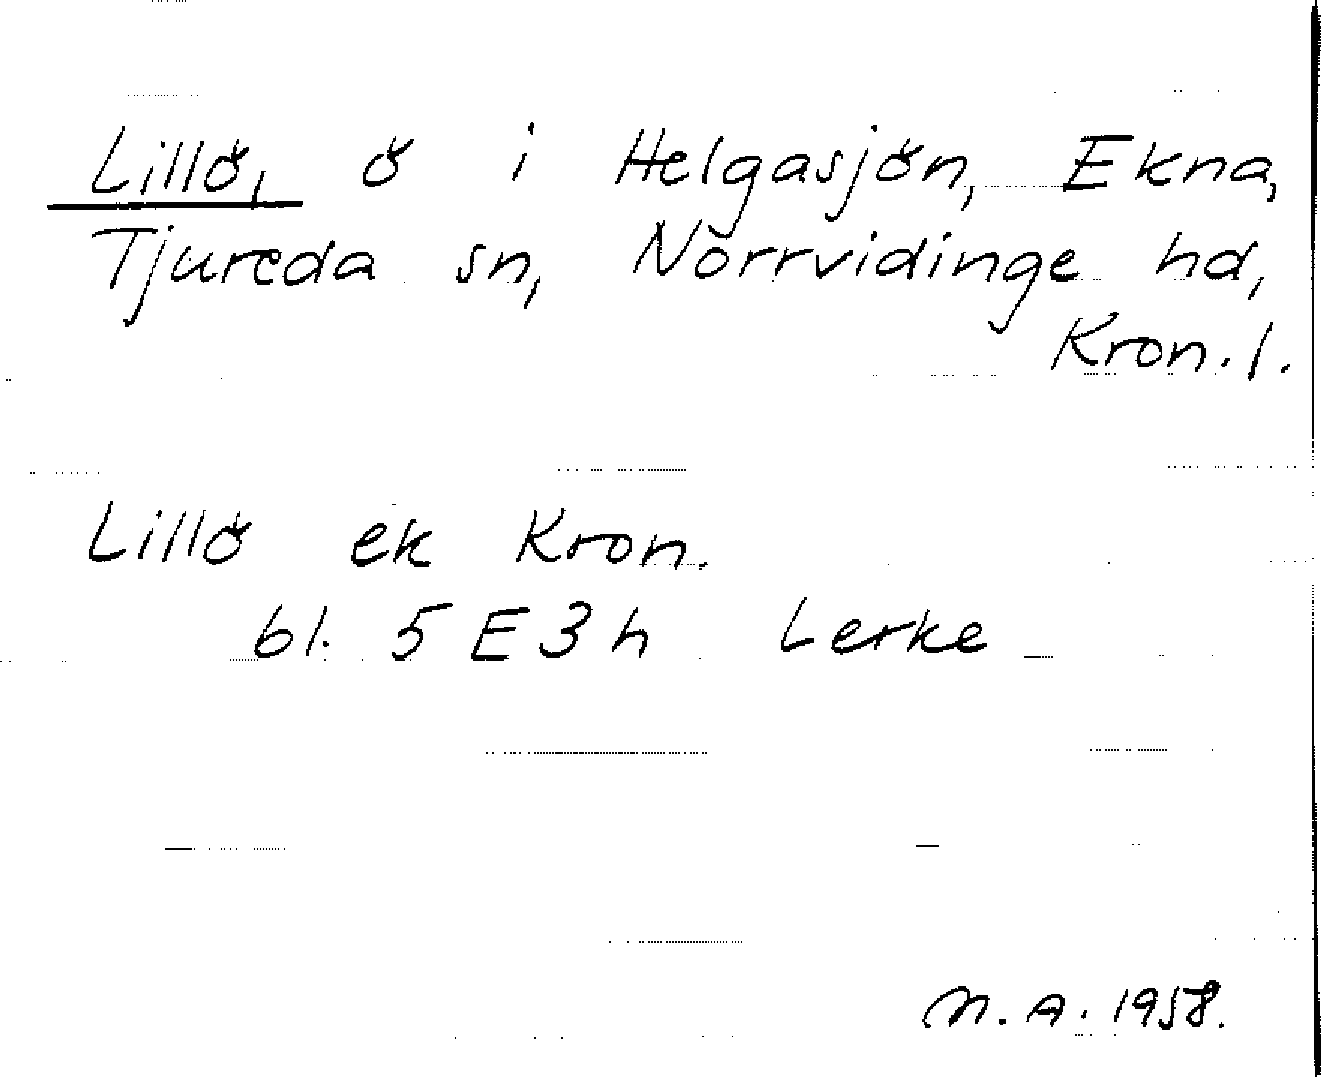 Lillö, ö i Helgasjön, Ekna,
Tjureda sn, Norrvidinge hd,
Kron. l.
Lillö ek Kron.
bl. 5 E 3 h Lerke
N. A. 1958.